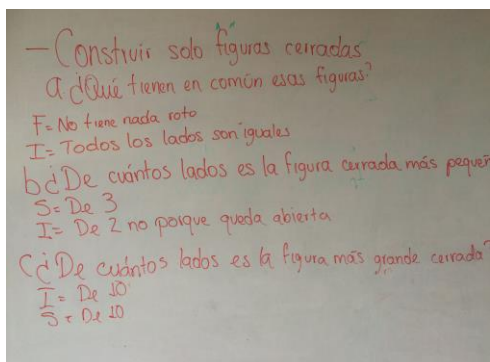 — Construir solo figuras cerradas
a ¿Qué tienen en común esas figuras?
F= No tiene nada roto
I= Todos los lados son iguales
b ¿De cuántos lados es la figura cerrada más pequeñ
S= De 3
I= De 2 no porque queda abierta
C ¿De cuántos lados es la figura más grande cerrada?
I= De 10
S= De 10